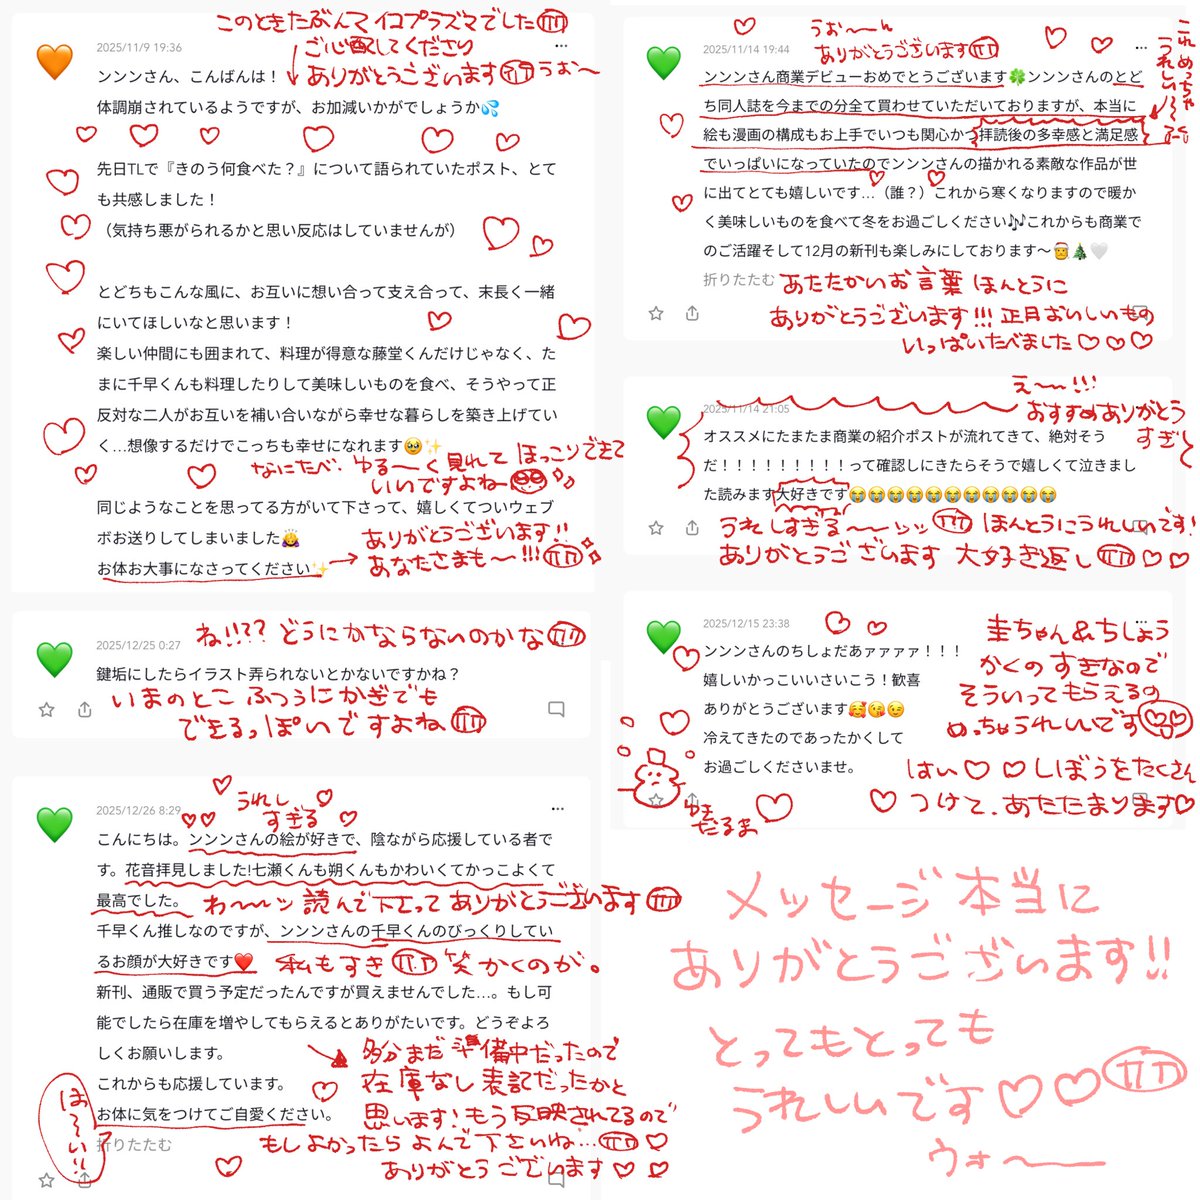 このときたぶんマイコプラズマでした
2025/11/9 19:36
ご心配してくださり
ありがとうございます うぉ〜
ンンンさん、こんばんは！
体調崩されているようですが、お加減いかがでしょうか💦
先日TLで『きのう何食べた？』について語られていたポスト、とて
も共感しました！
（気持ち悪がられるかと思い反応はしていませんが）
とどちもこんな風に、お互いに想い合って支え合って、末長く一緒
にいてほしいなと思います！
楽しい仲間にも囲まれて、料理が得意な藤堂くんだけじゃなく、た
まに千早くんも料理したりして美味しいものを食べ、そうやって正
反対な二人がお互いを補い合いながら幸せな暮らしを築き上げてい
く…想像するだけでこっちも幸せになれます🥹✨
なにたべ、ゆる〜く見れてほっこりできて
いいですよねー
同じようなことを思ってる方がいて下さって、嬉しくてついウェブ
ボお送りしてしまいました🙇‍♀️
お体お大事になさってください✨
→ありがとうございます!!
あなたさまも〜!!!
2025/12/25 0:27
ね!!?? どうにかならないのかな
鍵垢にしたらイラスト弄られないとかないですかね？
いまのとこ ふつうにかぎでも
できるっぽいですよね
2025/12/26 8:29
うれし
すぎる
こんにちは。ンンンさんの絵が好きで、陰ながら応援している者で
す。花音拝見しました!七瀬くんも朔くんもかわいくてかっこよくて
最高でした。
わ〜〜ッ 読んで下さって ありがとうございます
千早くん推しなのですが、ンンンさんの千早くんのびっくりしてい
るお顔が大好きです❤️
私もすき 笑 かくのが。
新刊、通販で買う予定だったんですが買えませんでした…。もし可
能でしたら在庫を増やしてもらえるとありがたいです。どうぞよろ
しくお願いします。
→多分まだ準備中だったので
在庫なし表記だったかと
思います!もう反映されてるので
もしよかったらよんで下さいね…
ありがとうございます♡♡
これからも応援しています。
お体に気をつけてご自愛ください。
折りたたむ
は〜い!!
2025/11/14 19:44
うぉ〜〜ん
ありがとうございます
これめっちゃ
うれしい〜
ンンンさん商業デビューおめでとうございます🍀ンンンさんのとど
ち同人誌を今までの分全て買わせていただいておりますが、本当に
絵も漫画の構成もお上手でいつも関心かつ拝読後の多幸感と満足感
でいっぱいになっていたのでンンンさんの描かれる素敵な作品が世
に出てとても嬉しいです…（誰？）これから寒くなりますので暖か
く美味しいものを食べて冬をお過ごしください🎶これからも商業で
のご活躍そして12月の新刊も楽しみにしております〜🎅🎄🤍
折りたたむ
あたたかいお言葉ほんとうに
ありがとうございます!!! 正月おいしいもの
いっぱいたべました♡♡♡
2025/11/14 21:05
え〜〜!!!
おすすめありがとう
すぎ
オススメにたまたま商業の紹介ポストが流れてきて、絶対そう
だ！！！！！！！！！って確認しにきたらそうで嬉しくて泣きまし
た読みます大好きです😭😭😭😭😭😭😭😭😭😭😭
うれしすぎる〜〜ッッ ほんとうにうれしいです!
ありがとうございます 大好き返し ♡♡
2025/12/15 23:38
ンンンさんのちしょだあァァァァ！！！
嬉しいかっこいいさいこう！歓喜
ありがとうございます🥰😘😉
冷えてきたのであったかくして
お過ごしくださいませ。
圭ちゃん&ちしょう
かくの すきなので
そういってもらえるの
めっちゃうれしいです
はい♡♡しぼうをたくさん
つけて、あたたまります♡
ゆき
だるま
メッセージ本当に
ありがとうございます!!
とってもとっても
うれしいです♡♡
ウォ〜